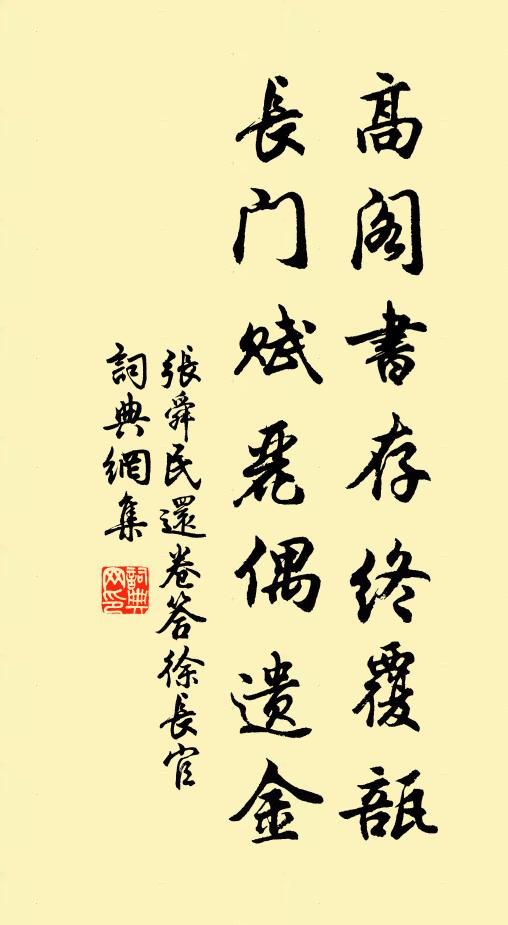 高阁書存终覆瓿
長门赋麗偶遗金
張舜民還卷答徐長官
詞典網集
詞典网印